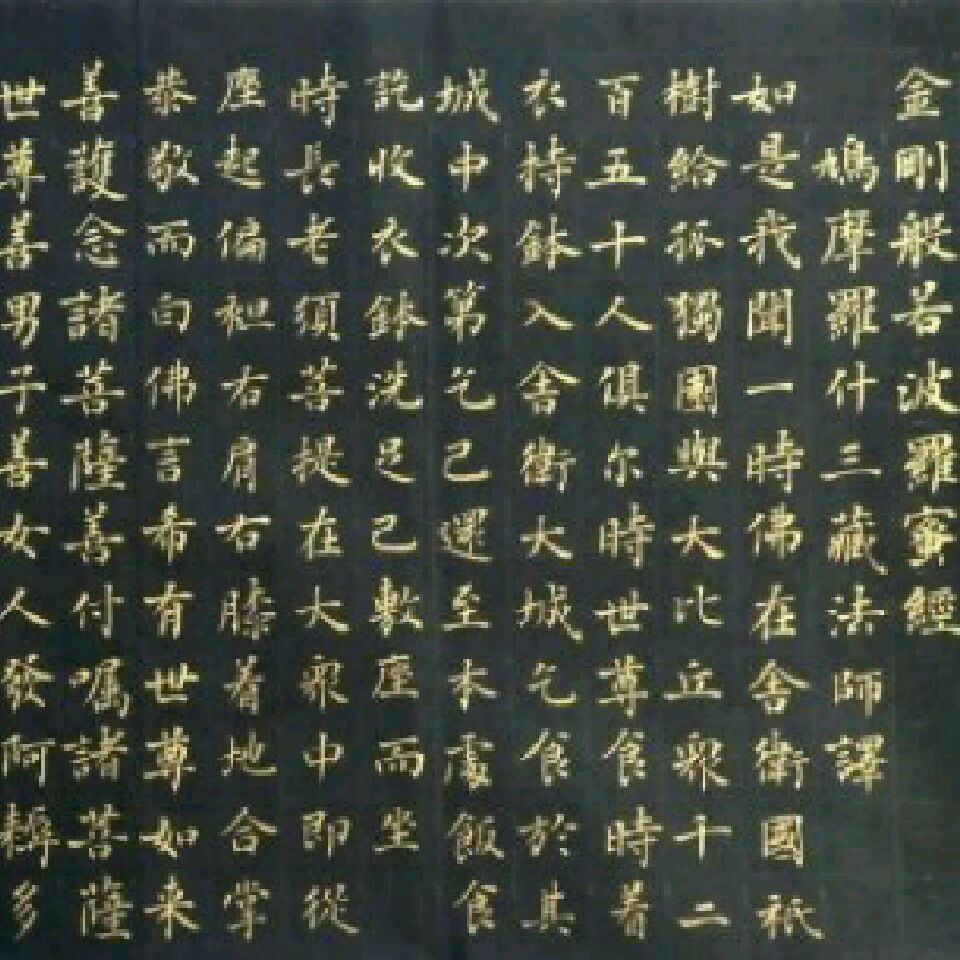 金剛般若波羅蜜經
鳩摩羅什三藏法師譯
如是我聞一時佛在舍衛國祇
樹給孤獨園與大比丘衆千二
百五十人俱尔時世尊食時着
衣持鉢入舍衛大城乞食於其
城中次第乞已還至本處飯食
訖收衣鉢洗足已敷座而坐
時長老須菩提在大衆中即從
座起偏袒右肩右膝着地合掌
恭敬而白佛言希有世尊如来
善護念諸菩薩善付嘱諸菩薩
世尊善男子善女人發阿耨多